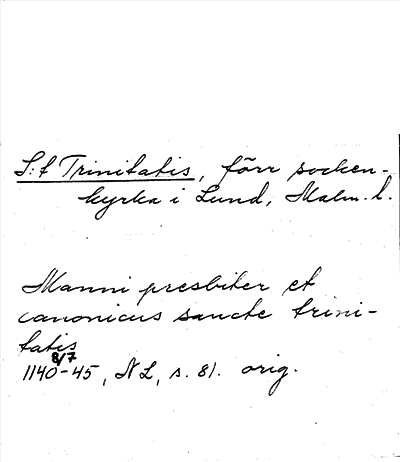 S:t Trinitatis, förr socken-
kyrka i Lund, Malm. l.
Manni presbiter et
canonicus sancte trini-
tatis
8/7
1140-45, NL, s. 81. orig.